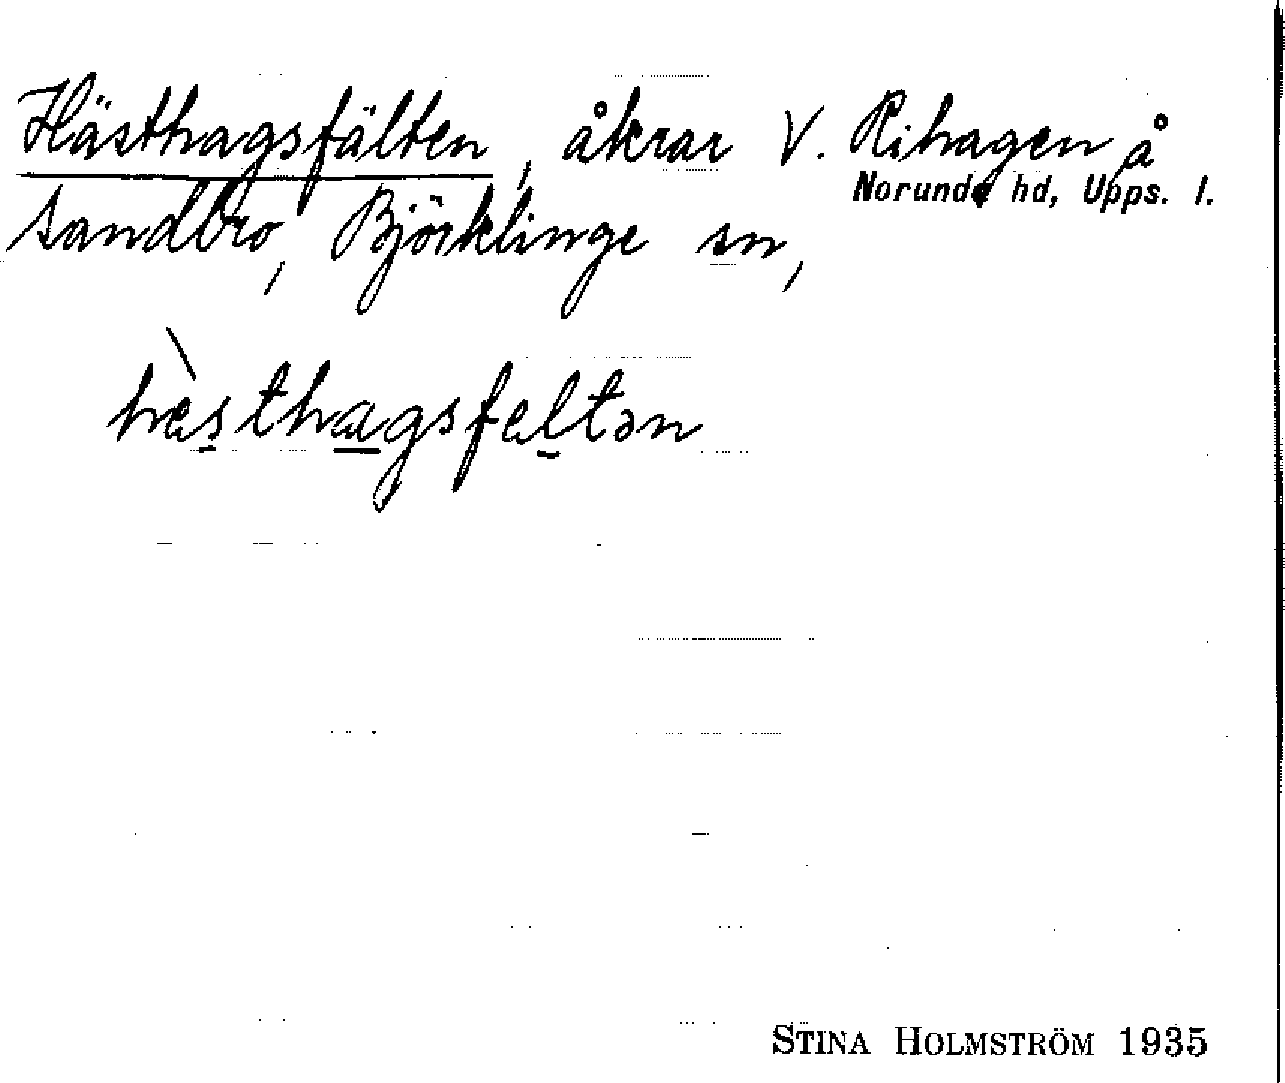 Hästhagsfälten, åkrar V. Rihagen å
Norunda hd, Upps. l.
Sandbro, Björklinge sn,
hèsthagsfeltən
STINA HOLMSTRÖM 1935